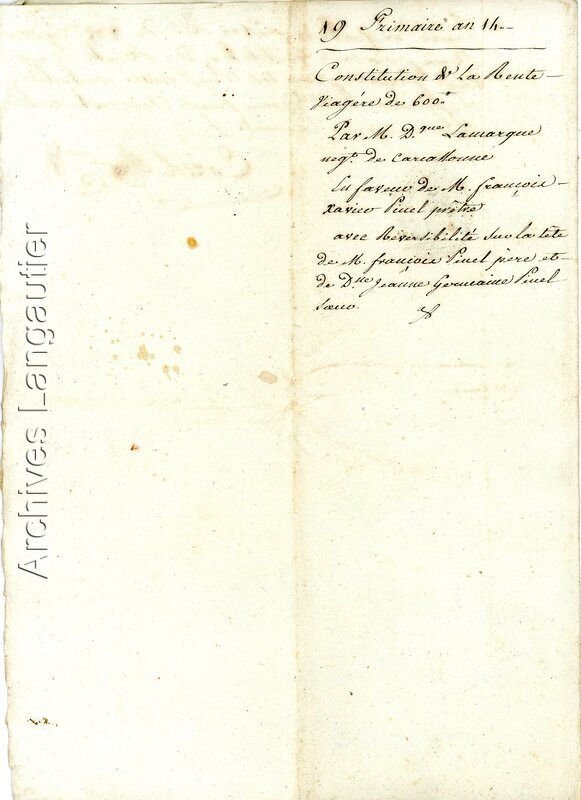 19 frimaire an 14.
Constitution de La Rente
viagére de 600#
Par M. D.que Lamarque
negt. de Carcassonne
En faveur de M. françois
xavier Pinel prêtre
avec Réversibilité sur la tete
de M. françois Pinel père et
de Dlle jeanne Germaine Pinel
soeur.
Archives Langautier